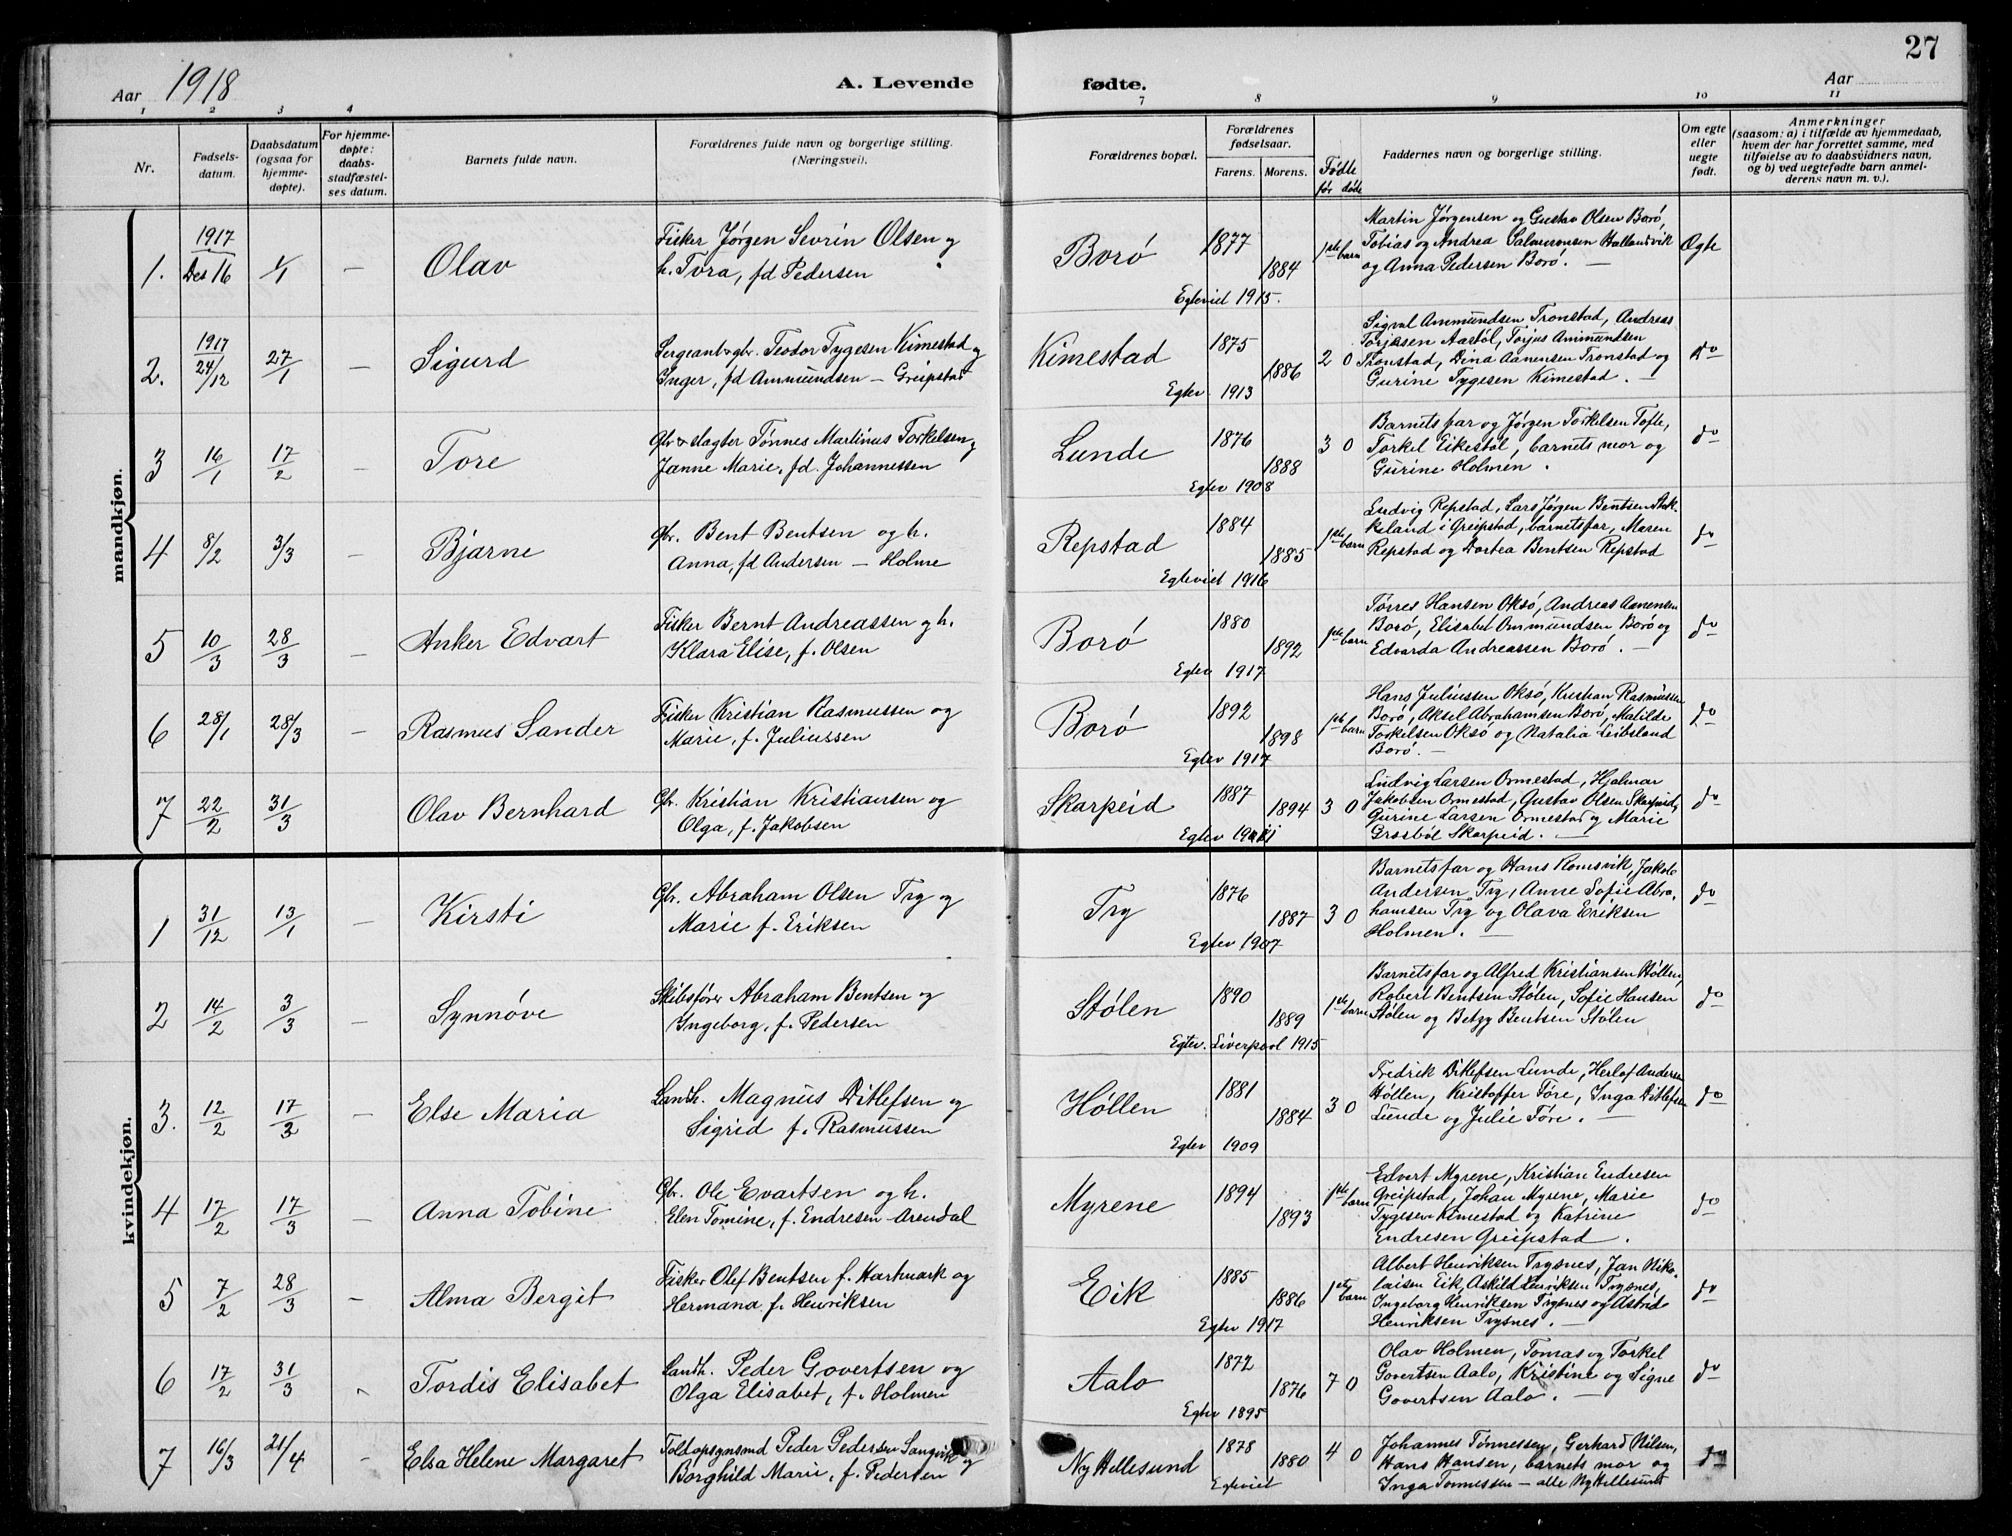 27
Aar 1918
A. Levende fødte.
Aar
1 2 3 4 7 8 9 10 11
Nr.
Fødsels-
datum.
Daabsdatum
(ogsaa for
hjemme-
døpte).
For hjemme-
døpte:
daabs-
stadfæstel-
ses datum.
Barnets fulde navn.
Forældrenes fulde navn og borgerlige stilling.
(Næringsvei).
Forældrenes bopæl.
Forældrenes
fødselsaar.
Farens. Morens.
Fødte
før døde
Faddernes navn og borgerlige stilling.
Om egte
eller
uegte
født.
Anmerkninger
(saasom: a) i tilfælde av hjemmedaab,
hvem der har forrettet samme, med
tilføielse av to daabsvidners navn,
og b) ved uegtefødte barn anmel-
derens navn m. v.).
mandkjøn.
1. 1917 Des 16 1/1 — Olav
Fisker Jørgen Sevrin Olsen og
h. Tora, fd Pedersen
Borø 1877 1884 1ste barn
Egteviet 1915.
Martin Jørgensen og Gustav Olsen Borø,
Tobias og Andrea Salveronsen Hallandsvik
og Anna Pedersen Borø. —
Egte
2. 1917 24/12 27/1 — Sigurd
Sergeant & gbr. Teodor Tygesen Kimestad og
Inger, fd Ammundsen — Greipstad
Kimestad 1875 1886 2 0
Egtev 1913
Sigval Ammundsen Tronstad, Andreas
Torjusen Aastøl, Torjus Ammundsen
Tronstad, Dina Aanensen Tronstad og
Gurine Tygesen Kimestad. —
do
3 16/1 17/2 — Tore
Gbr & slagter Tønnes Martinus Torkelsen og
Janne Marie, fd. Johannessen
Lunde 1876 1888 3 0
Egtev 1908
Barnets far og Jørgen Torkelsen Tofte,
Torkel Eikestøl, barnets mor og
Gurine Holmen.
do
4 8/2 3/3 — Bjarne
Gbr. Bent Bentsen og h.
Anna, fd Andersen — Holme
Repstad 1884 1885 1ste barn
Egteviet 1916
Ludvig Repstad, Lars Jørgen Bentsen Stok-
keland i Greipstad, barnets far, Maren
Repstad og Dortea Bentsen Repstad
do
5 10/3 28/3 — Anker Edvart
Fisker Bernt Andreassen og h.
Klara Elise, f. Olsen
Borø 1880 1892 1ste barn
Egtev 1917
Tørres Hansen Oksø, Andreas Aanensen
Borø, Elisabet Ommundsen Borø og
Edvarda Andreassen Borø. —
do
6 28/1 28/3 — Rasmus Sander
Fisker Kristian Rasmussen og
Marie, f. Juliussen
Borø 1892 1898 1ste barn
Egtev 1917
Hans Juliussen Oksø, Kristian Rasmussen
Borø, Aksel Abrahamsen Borø, Matilde
Torkelsen Oksø og Natalia Leibsland
Borø. —
do
7 22/2 31/3 Olav Bernhard
Gbr. Kristian Kristiansen og
Olga, f. Jakobsen
Skarpeid 1887 1894 3 0
Egtev
Ludvig Larsen Ormestad, Hjalmar
Jakobsen Ormestad, Gustav Olsen Skarpeid,
Gurine Larsen Ormestad og Marie
Grosbøl Skarpeid. —
do
kvindekjøn.
1 31/12 13/1 — Kirsti
Gbr. Abraham Olsen Try og
Marie f. Eriksen
Try 1876 1887 3 0
Egtev 1907
Barnets far og Hans Romsvik, Jakob
Andersen Try, Anne Sofie Abra-
hamsen Try og Olava Eriksen
Holmen. —
do
2 14/2 3/3 — Synnøve
Skibsfører Abraham Bentsen og
Ingeborg, f. Pedersen
Stølen 1890 1889 1ste barn
Egtev. Liverpool 1915
Barnets far og Alfred Kristiansen Høllen,
Robert Bentsen Stølen, Sofie Hansen
Stølen og Betzy Bentsen Stølen
do
3. 12/2 17/3 — Else Maria
Landh. Magnus Ditlefsen og
Sigrid f. Rasmussen
Høllen 1881 1884 3 0
Egtev 1909
Fredrik Ditlefsen Lunde, Herlof Andersen
Høllen, Kristoffer Føre, Inga Ditlefsen
Lunde og Julie Føre.
do
4 17/2 17/3 — Anna Tobine
Gbr. Ole Evartsen og h.
Elen Tomine, f. Endresen Arendal
Myrene 1894 1893 1ste barn
Edvert Myrene, Kristian Endresen
Greipstad, Johan Myrene, Marie
Tygesen Kimestad og Katrine
Endresen Greipstad.
do
5 7/2 28/3 — Alma Bergit
Fisker Olef Bentsen f. Hartmark og
Hermana f. Henriksen
Eik 1885 1886 1ste barn
Egtev 1917
Albert Henriksen Trysnes, Jan Niko-
laisen Eik, Askild Henriksen Trysnes,
Ingeborg Henriksen Trysnes og Astrid
Henriksen Trysnes. —
do
6 17/2 31/3 Tordis Elisabet
Landh. Peder Govertsen og
Olga Elisabet, f. Holmen
Aalo 1872 1876 7 0
Egtev 1895
Olav Holmen, Tomas og Torkel
Govertsen Aalo, Kristine og Signe
Govertsen Aalo. —
do
7 16/3 21/4 — Elsa Helene Margaret
Toldopsynsmd Peder Pedersen Sangvik og
Borghild Marie, f. Pedersen
Ny Hellesund 1878 1880 4 0
Egteviet
Johannes Tønnessen, Gerhard Nilsen,
Hans Hansen, barnets mor og
Inga Tønnessen — alle Ny Hellesund
do